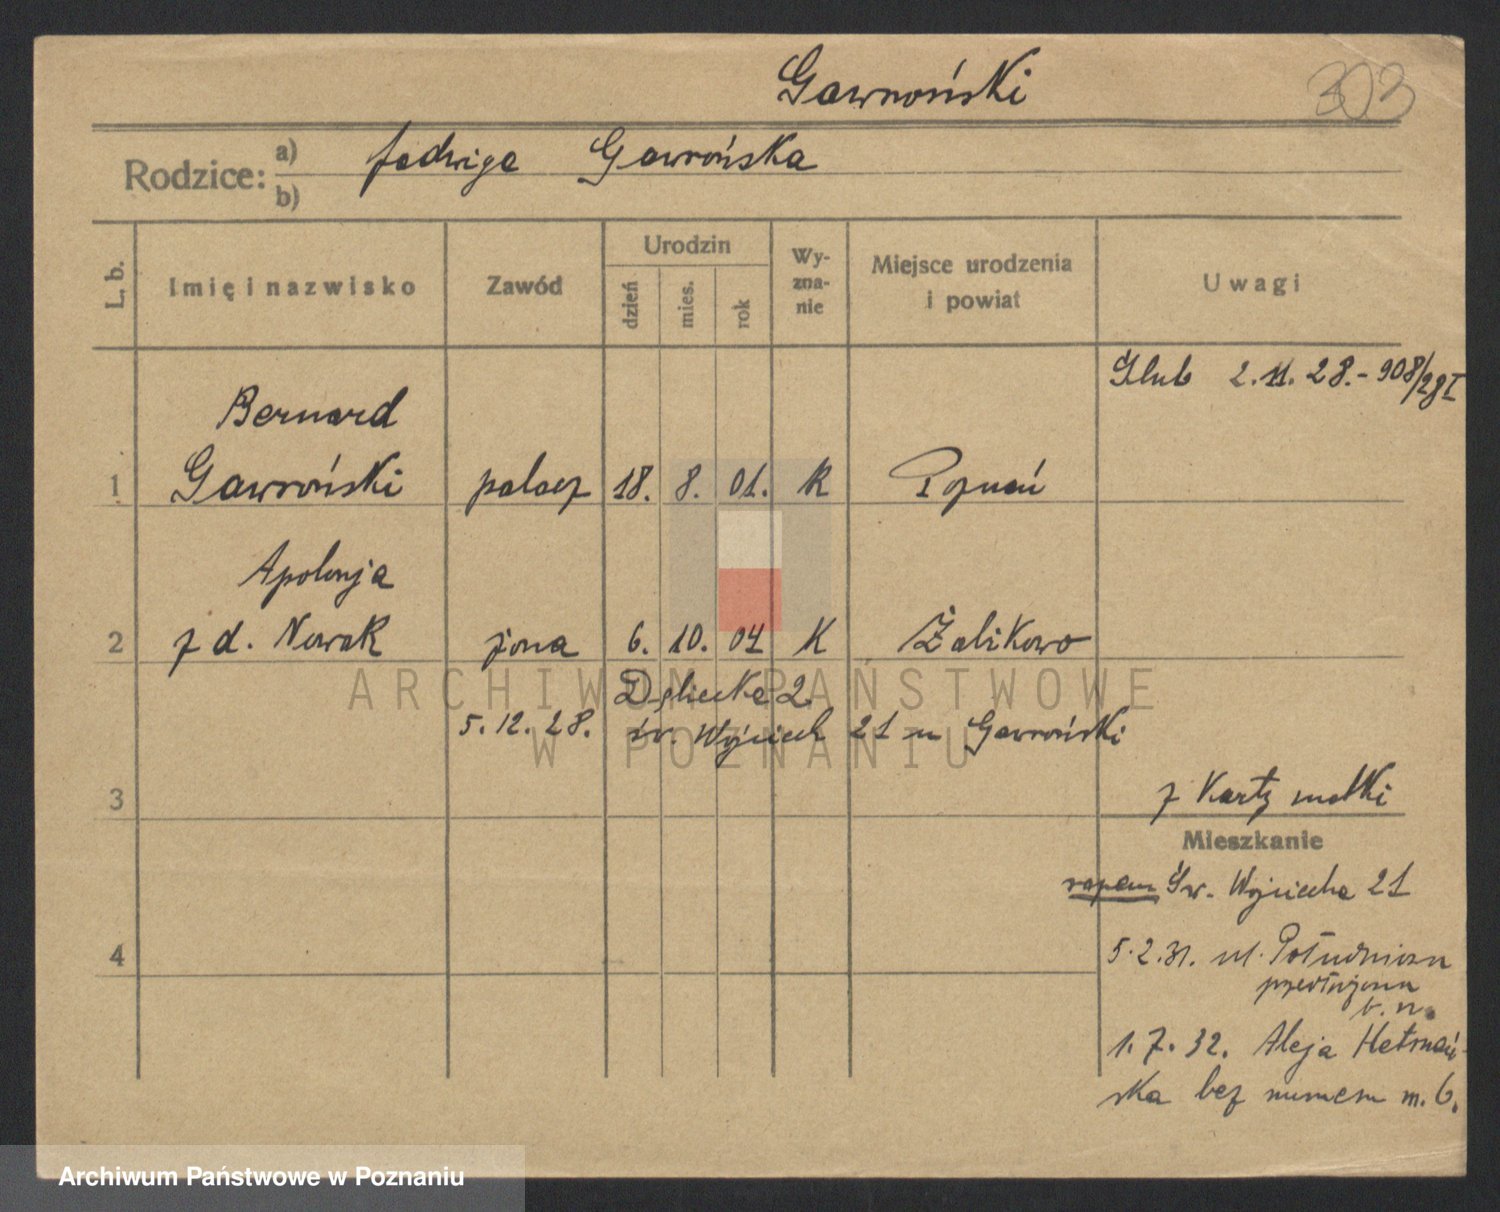 Gawroński
303
Rodzice: a) Jadwiga Gawrońska
b)
L. b. Imię i nazwisko Zawód Urodzin dzień mies. rok Wyznanie Miejsce urodzenia i powiat Uwagi
Ślub 2.11.28.- 908/28 I
Bernard
1 Gawroński palacz 18. 8. 01. K Poznań
Apolonja
2 z d. Nowak żona 6. 10. 04 K Żabikowo
2.
5.12.28. św. Wojciech 21 u Gawroński
3
z Karty matki
Mieszkanie
razem Św. Wojciecha 21
4
5.2.31. ul. Południowa
przedłużona
b. n.
1.7.32. Aleja Hetmań-
ska bez numeru m. 6.
ARCHIWUM PAŃSTWOWE
W POZNANIU
Archiwum Państwowe w Poznaniu